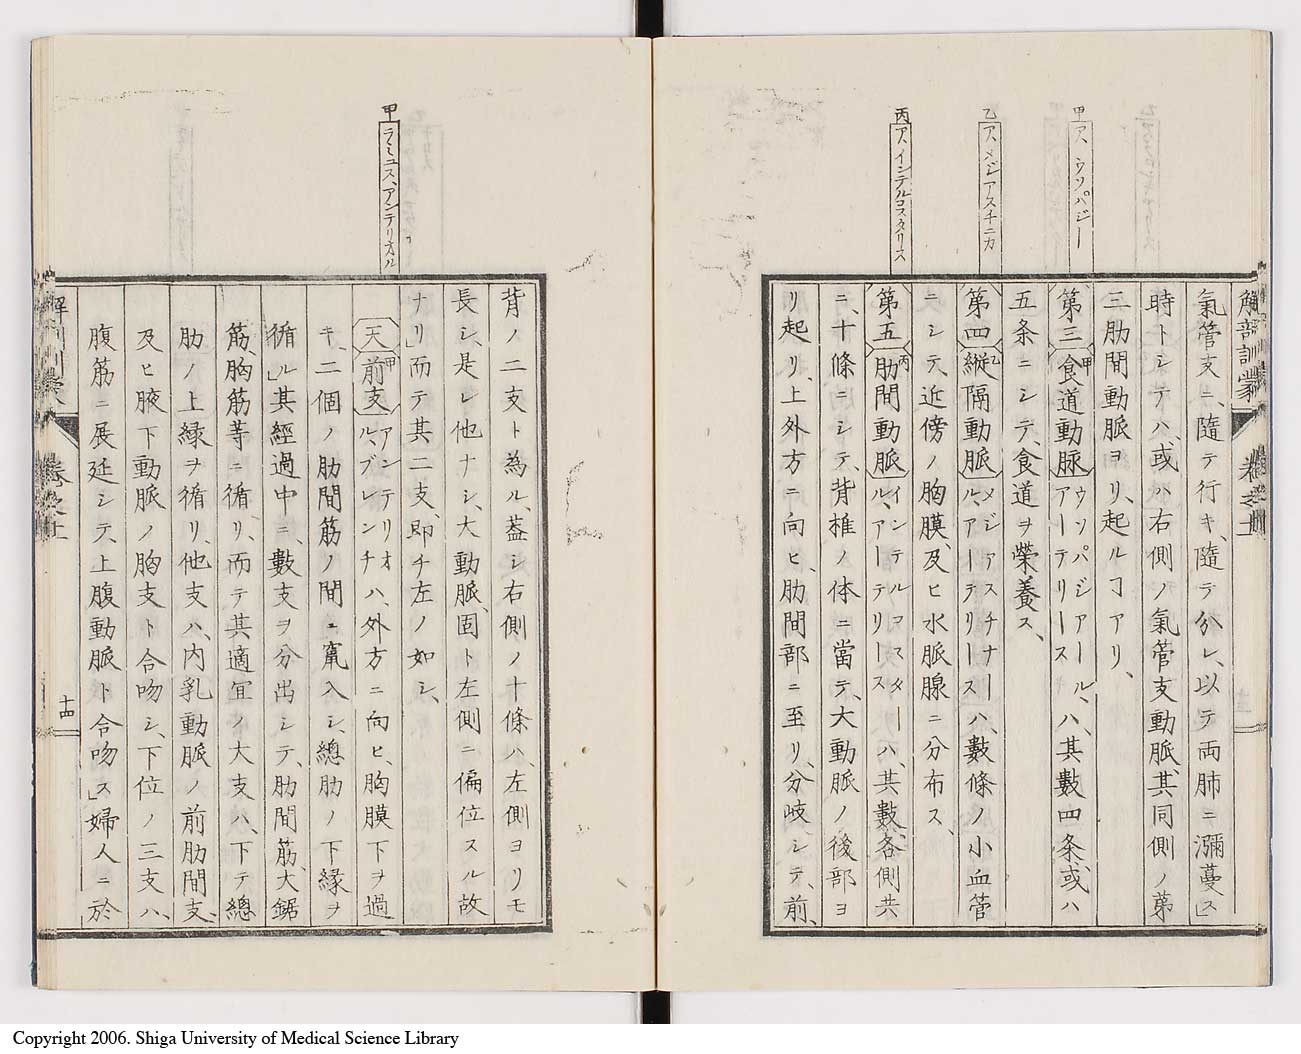 解剖訓蒙 卷之上
甲 ア、ウソパジー
乙 ア、メジアスチニカ
丙 ア、インテルコスタリス
氣管支ニ、隨テ行キ、隨テ分レ、以テ両肺ニ瀰蔓ス」
時トシテハ、或ハ右側ノ氣管支動脈、其同側ノ第
三肋間動脈ヨリ、起ルヿアリ、
第三 食道動脉 甲 ウソパジアール、アーテリース ハ、其數四条、或ハ
五条ニシテ、食道ヲ榮養ス、
第四 縦隔動脈 乙 メジアスチナール、アーテリース ハ、數條ノ小血管
ニシテ、近傍ノ胸膜、及ヒ水脈腺ニ分布ス、
第五 肋間動脈 丙 インテルコスタール、アーテリース ハ、其數各側共
ニ、十條ニシテ、背椎ノ体ニ當テ、大動脈ノ後部ヨ
リ起リ、上外方ニ向ヒ、肋間部ニ至リ、分岐シテ、前、
甲 ラミュス、アンテリオル
背ノ二支ト為ル、蓋シ右側ノ十條ハ、左側ヨリモ
長シ、是レ他ナシ、大動脈、固ト左側ニ偏位スル故
ナリ」而テ其二支、即チ左ノ如シ、
天 前支 甲 アンテリオル、ブレンチ ハ、外方ニ向ヒ、胸膜下ヲ過
キ、二個ノ肋間筋ノ間ニ竄入シ、總肋ノ下緣ヲ
循ル」其經過中ニ、數支ヲ分出シテ、肋間筋、大鋸
筋、胸筋等ニ循リ、而テ其適宜ノ大支ハ、下テ總
肋ノ上緣ヲ循リ、他支ハ、内乳動脈ノ前肋間支、
及ヒ腋下動脈ノ胸支ト合吻シ、下位ノ三支ハ、
腹筋ニ展延シテ、上腹動脈ト合吻ス」婦人ニ於
解剖訓蒙 卷之上
十四
Copyright 2006. Shiga University of Medical Science Library